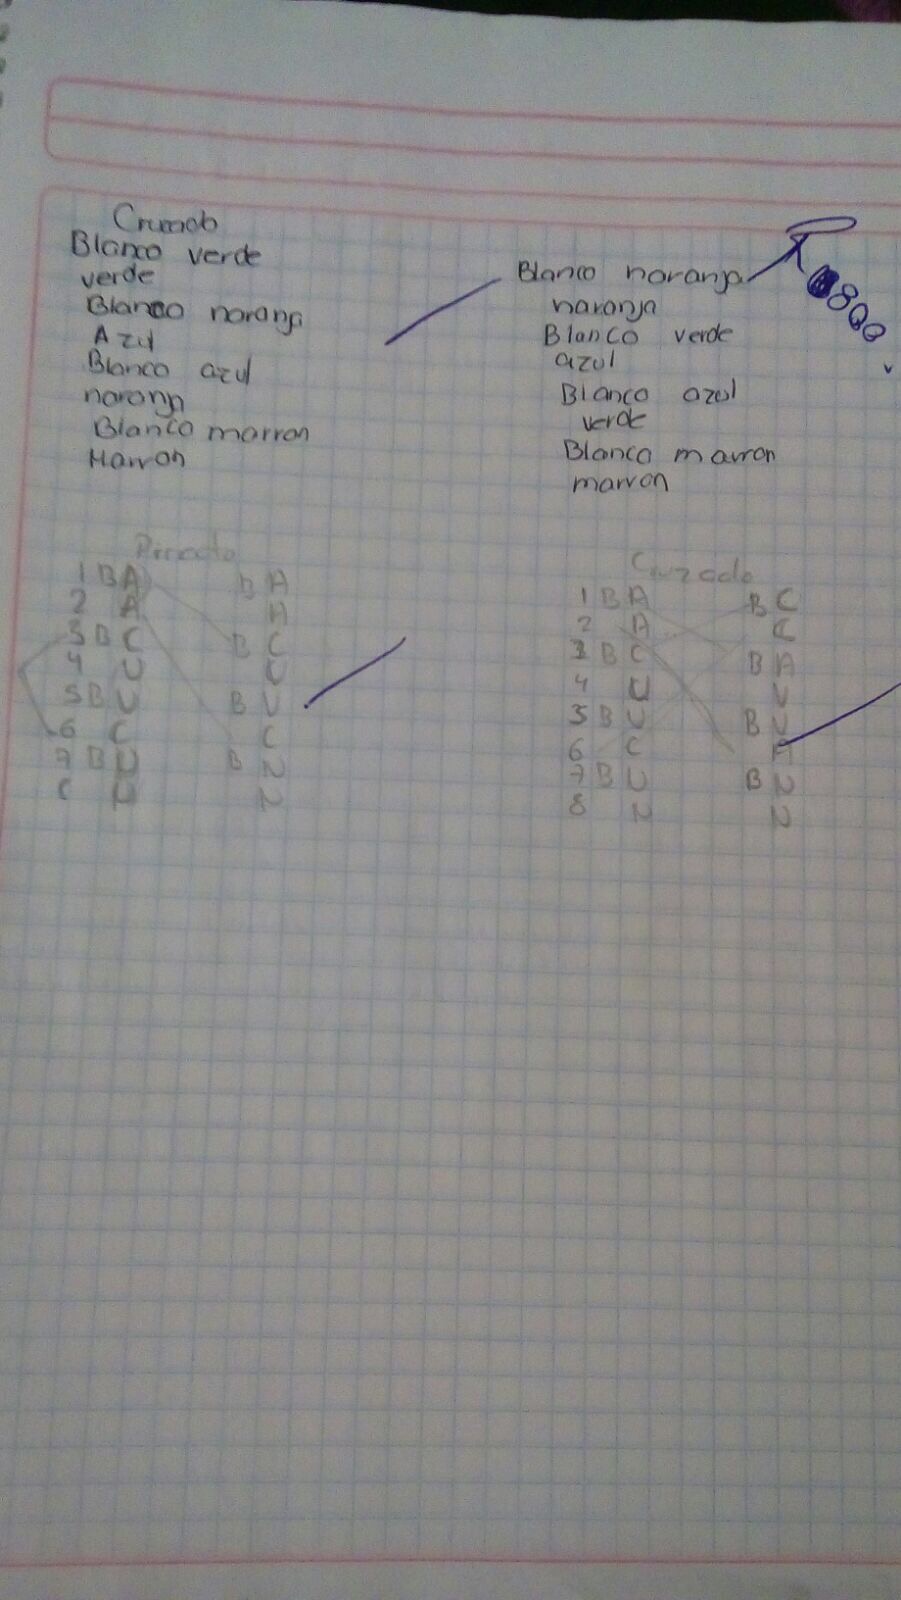 Cruzado
Blanco verde
verde
Blanco naranja
Azul
Blanco azul
naranja
Blanco marron
Marron
Blanco naranja
naranja
Blanco verde
azul
Blanco azul
verde
Blanco marron
marron
1 B A B A
2 A A
3 B C B C
4 U U
5 B U B U
6 C C
7 B U B N
N N
Cruzado
1 B A B C
2 A C
3 B C B A
4 U U
5 B U B U
6 C A
7 B U B N
8 N N